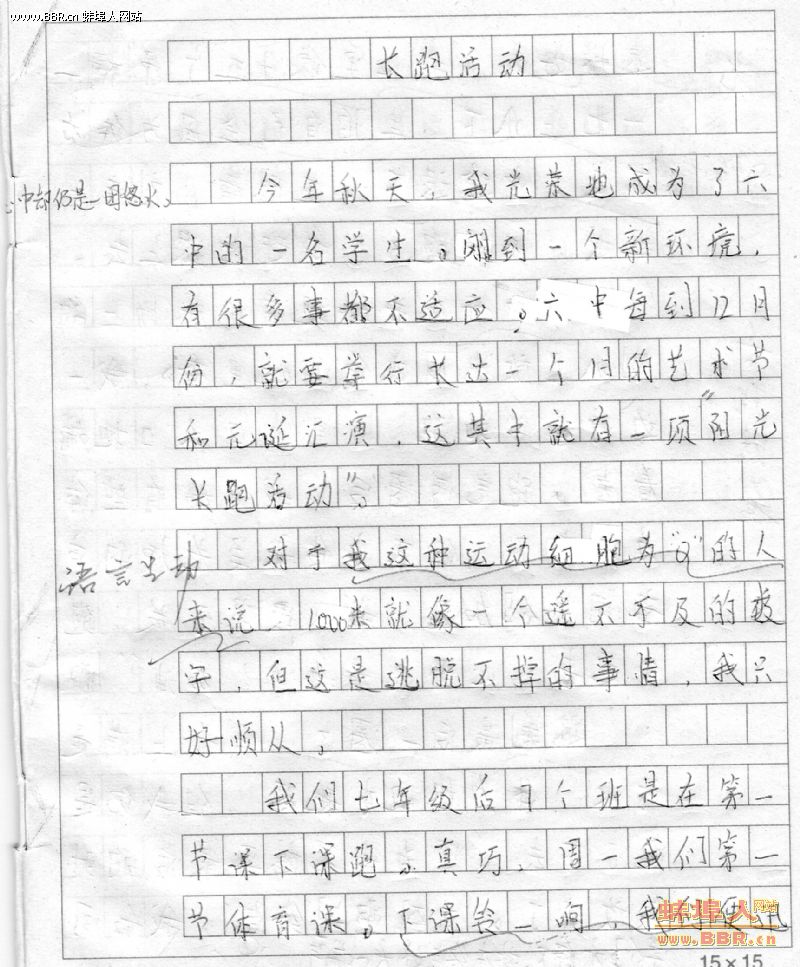 www.BBR.cn 蚌埠人网站
长跑活动
中却仍是一团怒火。
今年秋天,我光荣地成为了六
中的一名学生。刚到一个新环境,
有很多事都不适应。六中每到12月
份,就要举行长达一个月的艺术节
和元诞汇演,这其中就有一项"阳光
长跑活动"。
对于我这种运动细胞为"0"的人
语言生动
来说,1000米就像一个遥不可及的数
字,但这是逃脱不掉的事情,我只
好顺从,
我们七年级后7个班是在第一
节课下课跑。真巧,周一我们第一
节体育课。下课铃一响,我们便
蚌埠人网站
www.BBR.cn
15×15